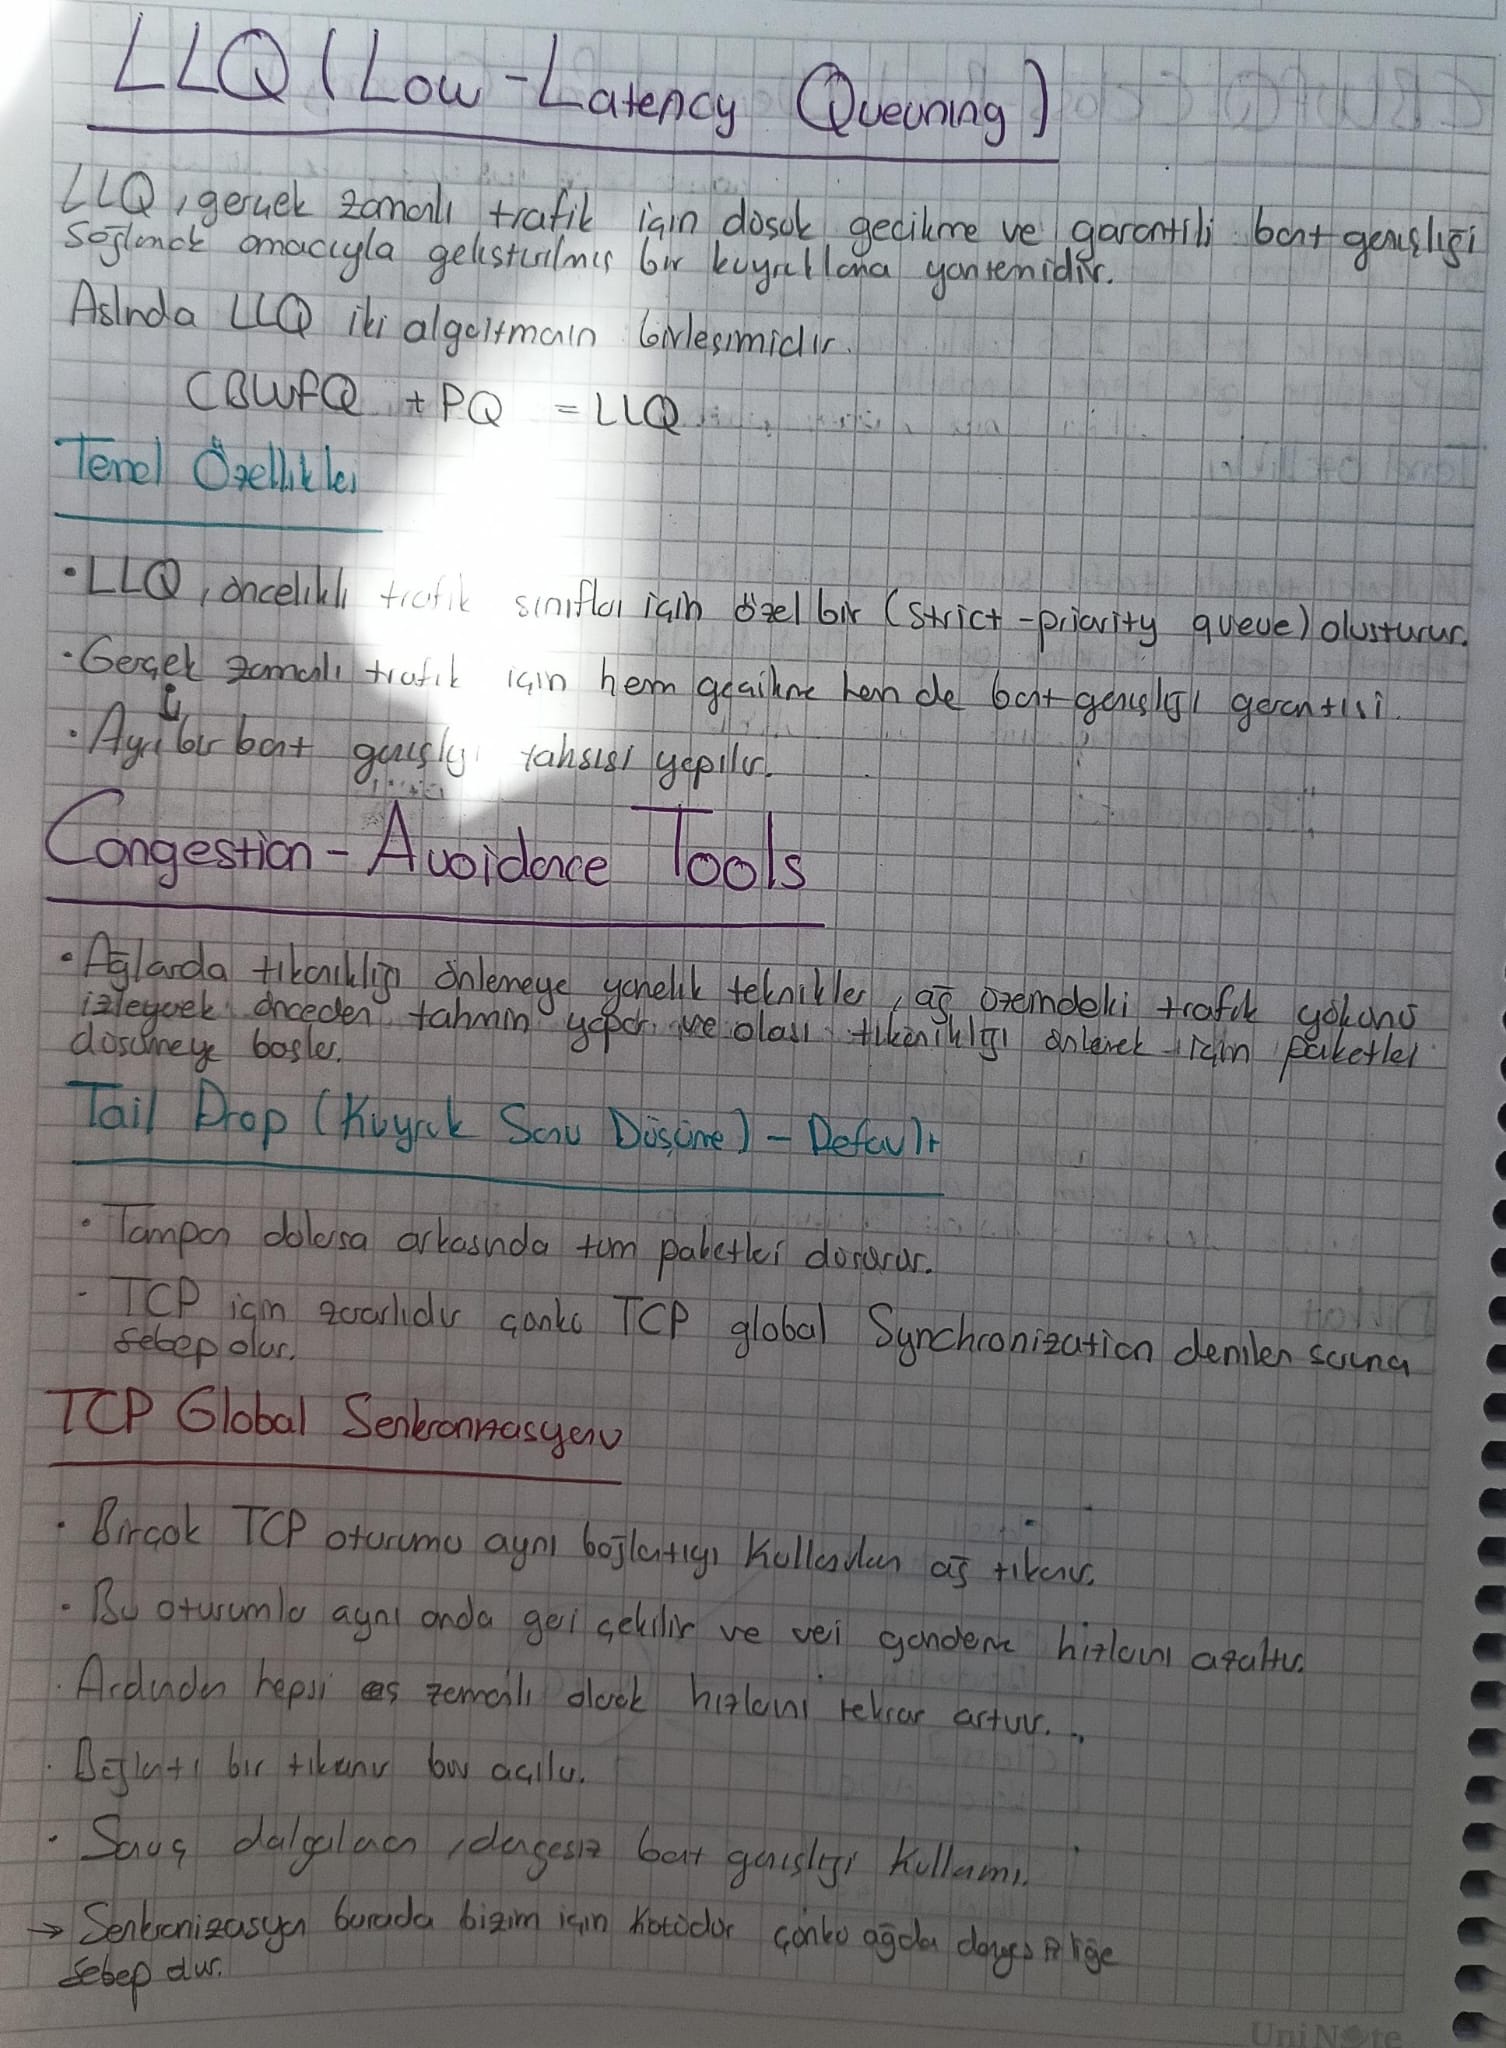 LLQ (Low-Latency Queuning)
LLQ, gerçek zamanlı trafik için düşük gecikme ve garantili bant genişliği
sağlamak amacıyla geliştirilmiş bir kuyruklama yöntemidir.
Aslında LLQ iki algoritmanın birleşimidir.
CBWFQ + PQ = LLQ
Temel Özellikler
• LLQ, öncelikli trafik sınıfları için özel bir (strict-priority queue) oluşturur.
• Gerçek zamanlı trafik için hem gecikme hem de bant genişliği garantisi.
• Ayrı bir bant genişliği tahsisi yapılır.
Congestion-Avoidance Tools
• Ağlarda tıkanıklığı önlemeye yönelik teknikler, ağ üzerindeki trafik yükünü
izleyerek önceden tahmin yapar ve olası tıkanıklığı önlemek için paketler
düşürmeye başlar.
Tail Drop (Kuyruk Sonu Düşürme) - Default
• Tampon dolarsa arkasında tüm paketleri düşürür.
- TCP için zararlıdır çünkü TCP global Synchronization denilen soruna
sebep olur.
TCP Global Senkronizasyonu
• Birçok TCP oturumu aynı bağlantıyı kullanırken ağ tıkanır.
• Bu oturumlar aynı anda geri çekilir ve veri gönderme hızlarını azaltır.
• Ardından hepsi eş zamanlı olarak hızlarını tekrar artırır.
• Bağlantı bir tıkanır bir açılır.
• Sonuç dalgalanan, dengesiz bant genişliği kullanımı.
→ Senkronizasyon burada bizim için kötüdür çünkü ağda dengesizliğe
sebep olur.
UniNote